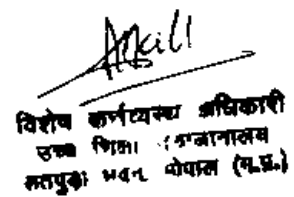 विशेष कर्त्तव्यस्थ अधिकारी
उच्च शिक्षा संचालनालय
सतपुड़ा भवन भोपाल (म.प्र.)